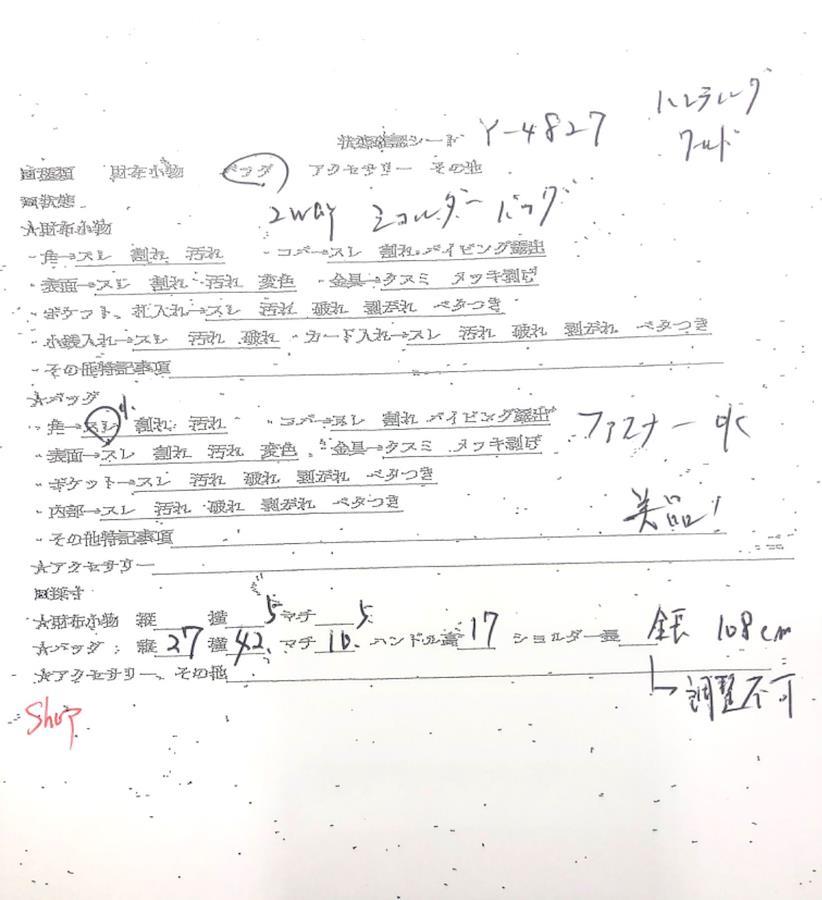 ハンティング
状態確認シート Y-4827
ワールド
■種類 財布小物 バッグ アクセサリー その他
■状態 2way ショルダーバッグ
★財布小物
・角→スレ 割れ 汚れ ・コバ→スレ 割れ パイピング露出
・表面→スレ 割れ 汚れ 変色 ・金具→クスミ メッキ剥げ
・ポケット、札入れ→スレ 汚れ 破れ 剥がれ ベタつき
・小銭入れ→スレ 汚れ 破れ ・カード入れ→スレ 汚れ 破れ 剥がれ ベタつき
・その他特記事項
★バッグ
・角→スレ 小 割れ 汚れ ・コバ→スレ 割れ パイピング露出 ファスナー OK
・表面→スレ 割れ 汚れ 変色 ・金具→クスミ メッキ剥げ
・ポケット→スレ 汚れ 破れ 剥がれ ベタつき
・内部→スレ 汚れ 破れ 剥がれ ベタつき 美品!
・その他特記事項
★アクセサリー
■採寸
★財布小物 縦 横 5 マチ 5
★バッグ:縦 27 横 42. マチ 10. ハンドル高 17 ショルダー長 全長 108cm
★アクセサリー、その他 調整不可
Shop